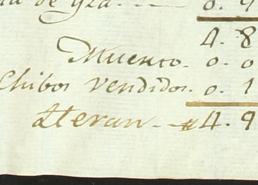 de Yza. --- 0. 4
4. 8
Muerto. 0. 0
Chibos vendidos. 0. 1
Ƶteran -- 4. 9